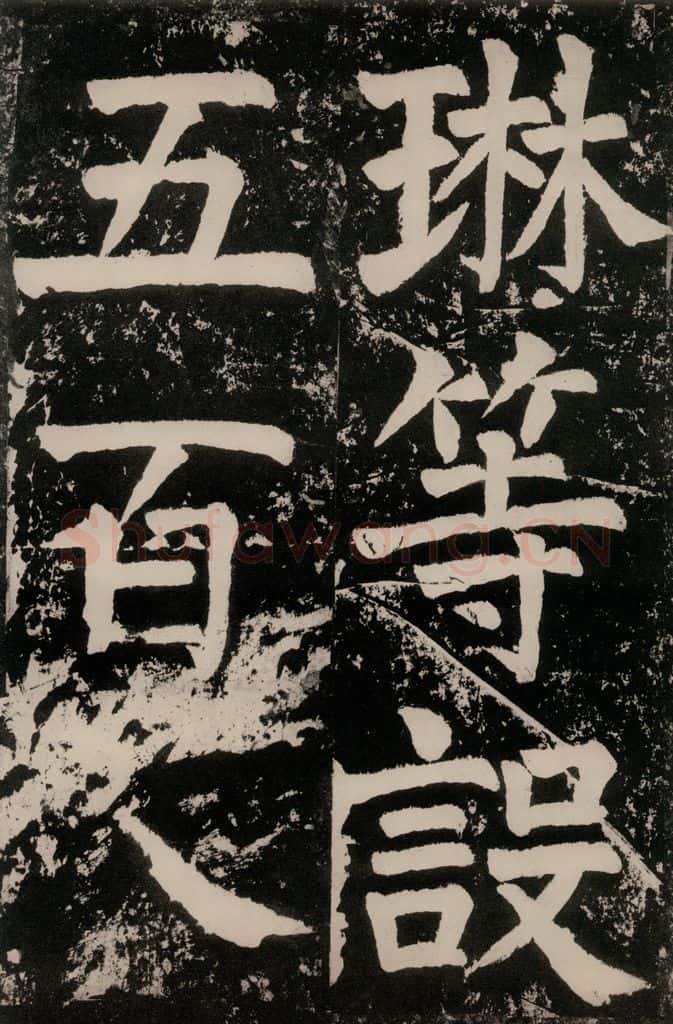 琳等設
五百人
Shufawang.CN